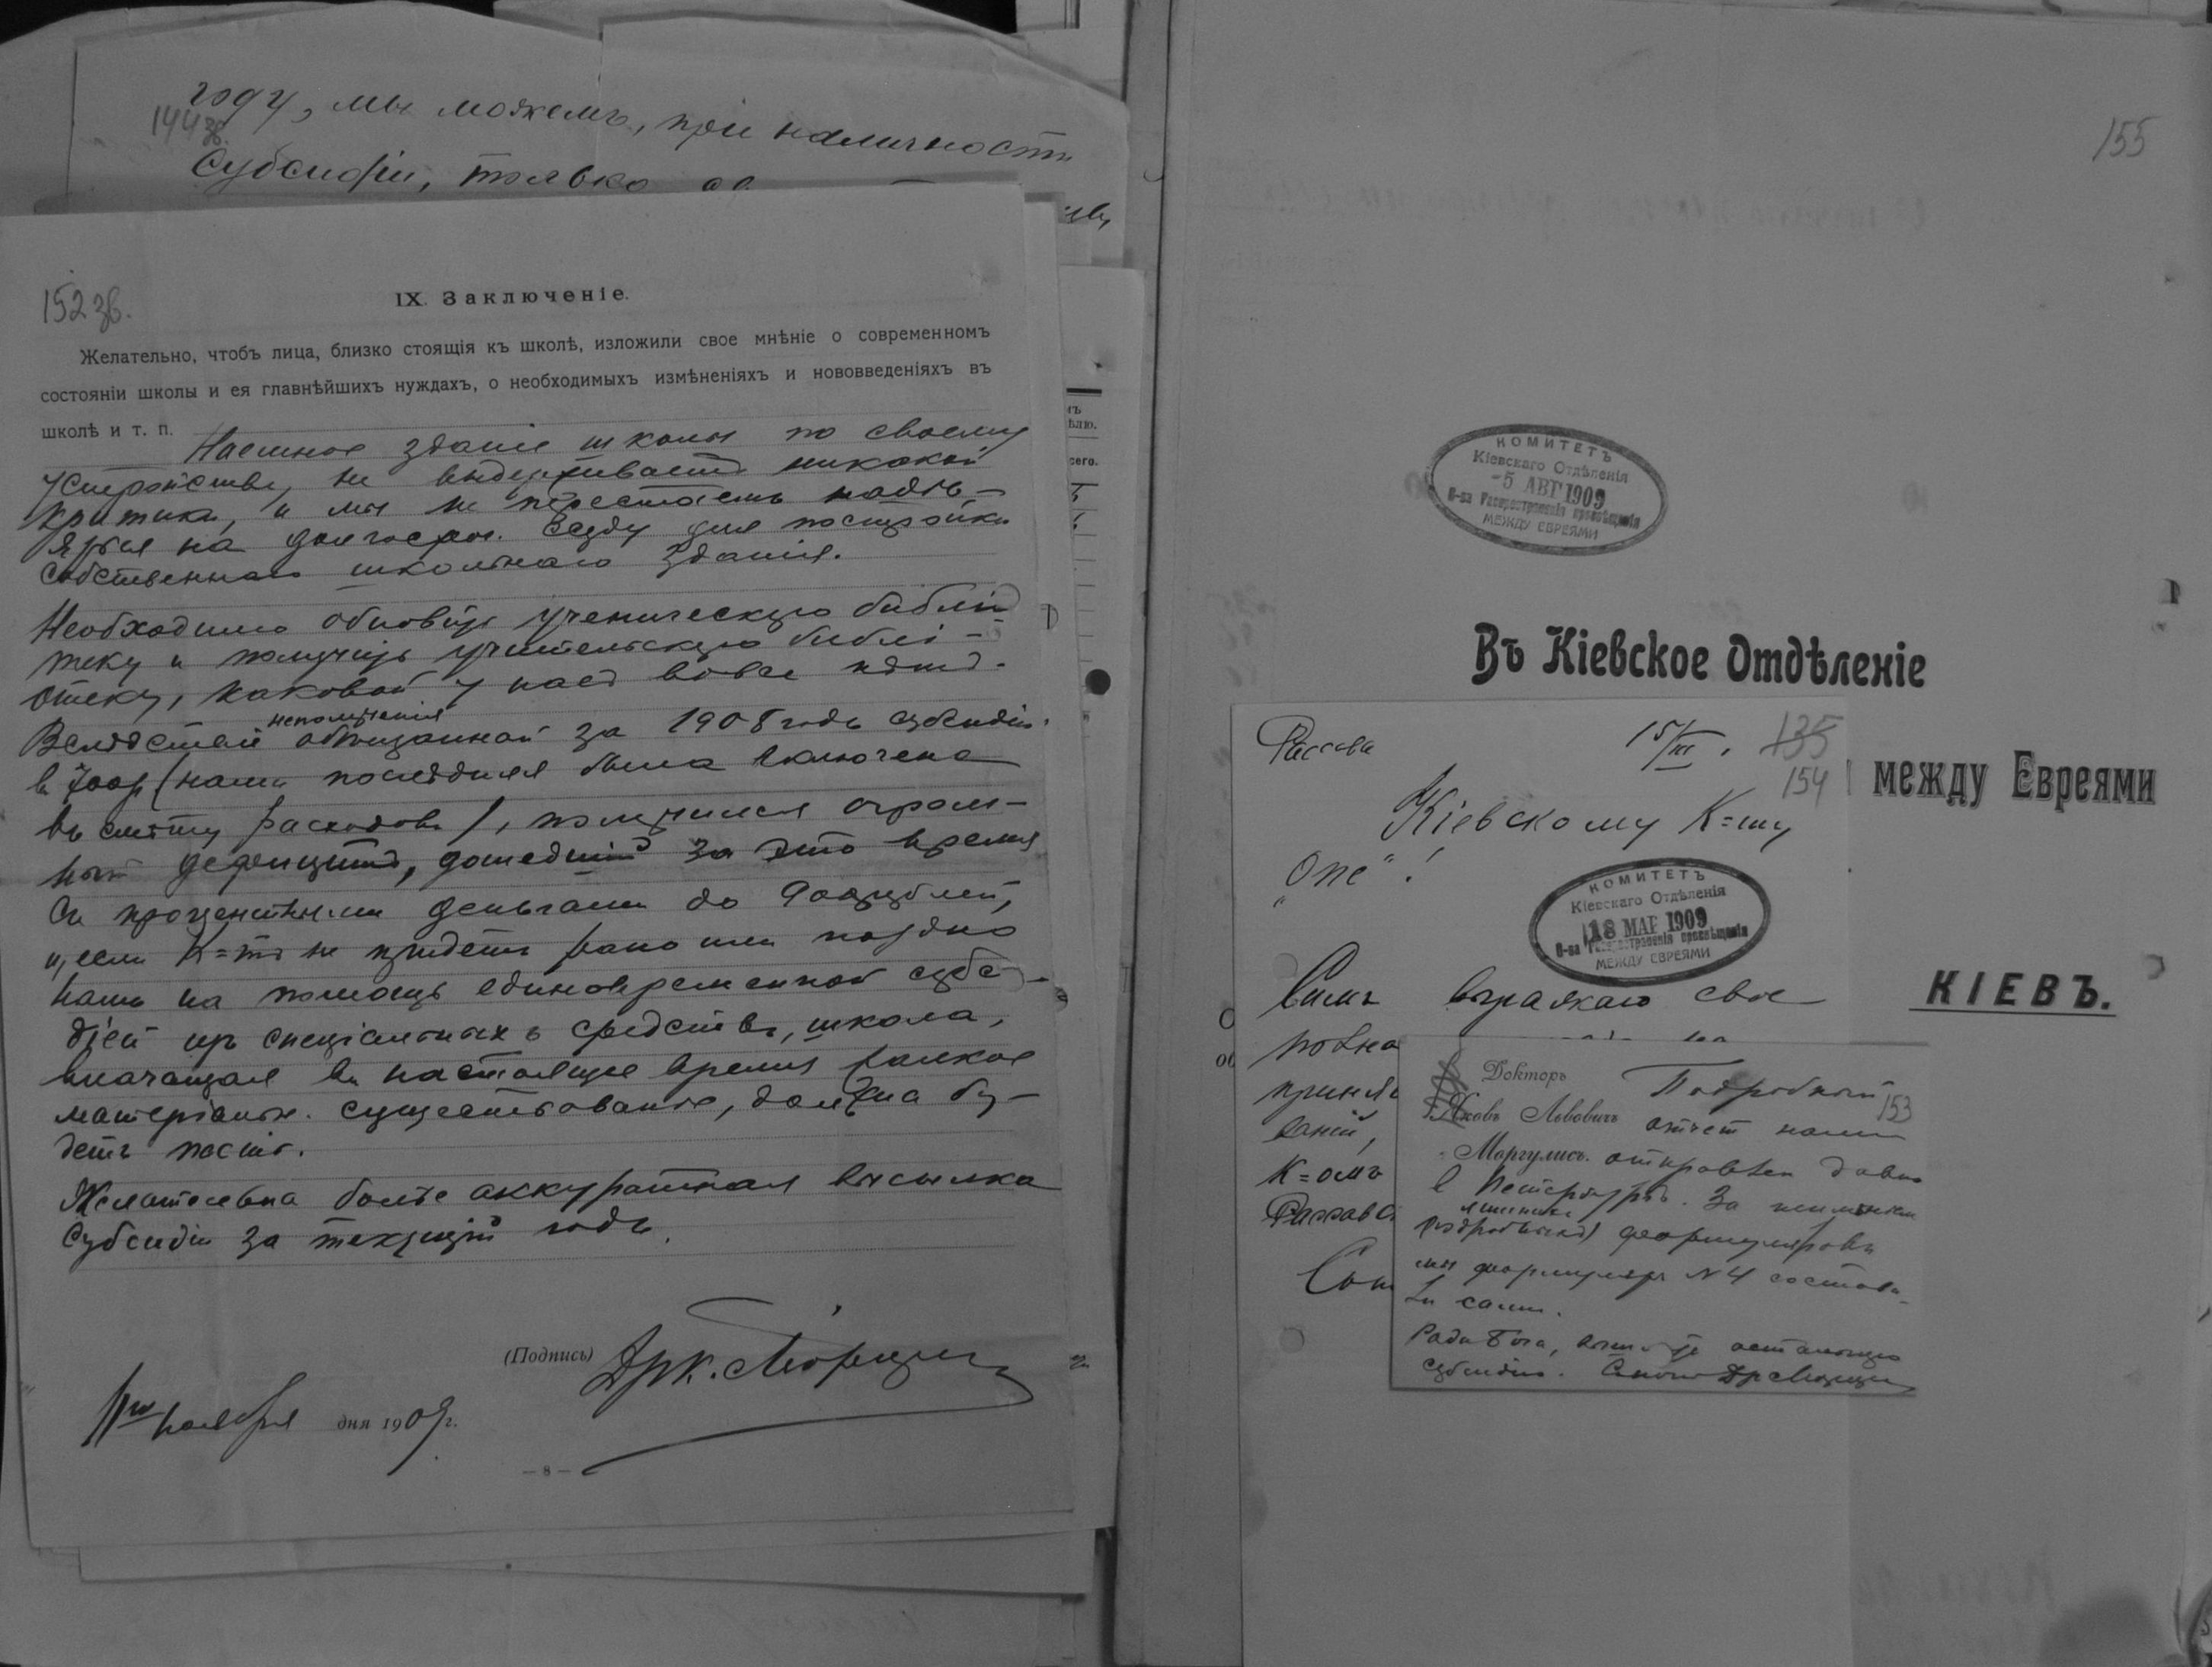 году, мы можемъ, при наличности
144 зв.
субсидіи, только
152 зв.
IX. Заключеніе.
Желательно, чтобъ лица, близко стоящія къ школѣ, изложили свое мнѣніе о современномъ
состояніи школы и ея главнѣйшихъ нуждахъ, о необходимыхъ измѣненіяхъ и нововведеніяхъ въ
школѣ и т. п.
Наемное зданіе школы по своему
устройству, не выдерживаетъ никакой
критики, и мы не перестаемъ надѣ-
яться на долгосроч. ссуду для постройки
собственнаго школьнаго зданія.
Необходимо обновить ученическую библіо
теку и получить учительскую библі-
отеку, каковой у насъ вовсе нѣтъ.
неполученія
Вслѣдствіе обѣщанной за 1908 годъ субсидіи
въ (нами послѣдняя была включена
въ смѣту расходовъ), получился огром-
ный дефицитъ, дошедшій за это время
съ процентными деньгами до рублей,
и, если К=тъ не придетъ рано или поздно
намъ на помощь единовременной субси-
діей изъ спеціальныхъ средствъ, школа,
влачащая въ настоящее время жалкое
матеріальн. существованіе, должна бу-
детъ пасть.
Желательна болѣе аккуратная высылка
субсидіи за текущій годъ.
(Подпись)
ноября дня 1909 г.
— 8 —
155
КОМИТЕТЪ
Кіевскаго Отдѣленія
-5 АВГ 1909
О-ва Распространенія просвѣщенія
МЕЖДУ ЕВРЕЯМИ
Въ Кіевское Отдѣленіе
между Евреями
КІЕВЪ.
15/III. 135
154
Кіевскому К=ту
„ОПЕ"!
КОМИТЕТЪ
Кіевскаго Отдѣленія
18 МАР 1909
О-ва Распространенія просвѣщенія
МЕЖДУ ЕВРЕЯМИ
Симъ выражаю свое
К=омъ
Докторъ
Яковъ Львовичъ
Маргулисъ.
153
Подробный
отчет нами
отправлен давно
в Петербургъ. За неимѣніем
мы формуляръ №4 состави-
ли сами.
Ради Бога, остальную
субсидію.